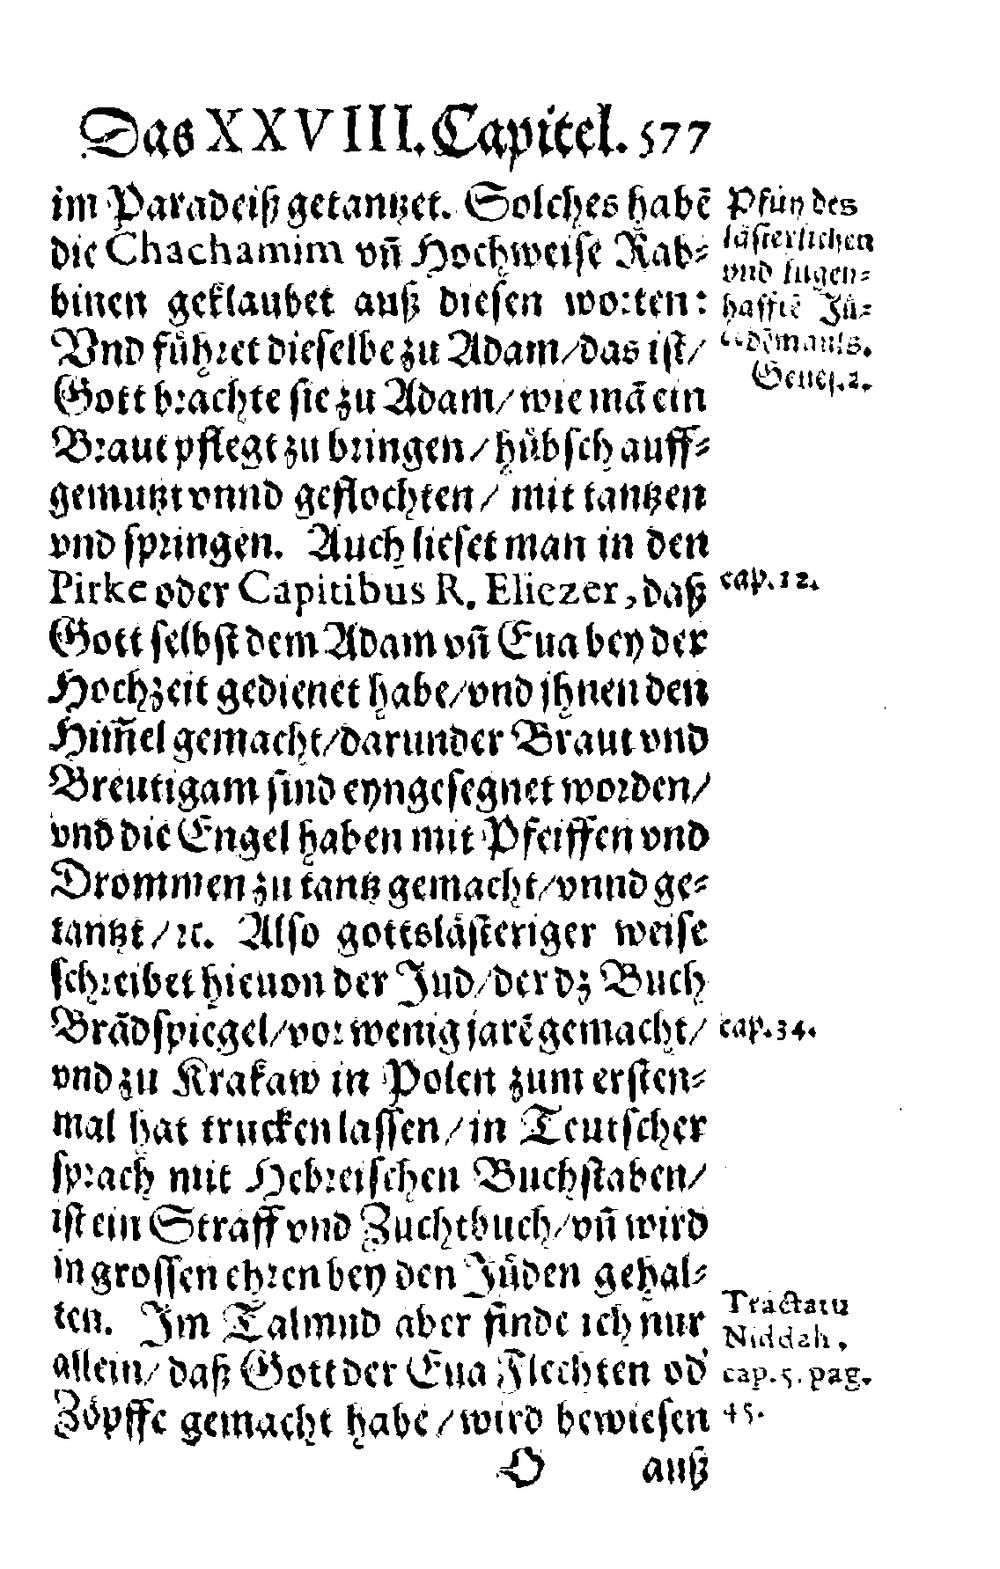 Das XXVIII. Capitel. 577
im Paradeiß getantzet. Solches habē
die Chachamim vñ Hochweise Rab⸗
binen geklaubet auß diesen worten:
Vnd führet dieselbe zu Adam/ das ist/
Gott brachte sie zu Adam/ wie mā ein
Braut pflegt zu bringen/ hübsch auff⸗
gemutzt vnnd geflochten/ mit tantzen
vnd springen. Auch lieset man in den
Pirke oder Capitibus R. Eliezer, daß
Gott selbst dem Adam vñ Eua bey der
Hochzeit gedienet habe/ vnd jhnen den
Him̄el gemacht/ darunder Braut vnd
Breutigam sind eyngesegnet worden/
vnd die Engel haben mit Pfeiffen vnd
Drommen zu tantz gemacht/ vnnd ge⸗
tantzt/ ꝛc. Also gottslästeriger weise
schreibet hieuon der Jud/ der dz Buch
Brādspiegel/ vor wenig jarē gemacht/
vnd zu Krakaw in Polen zum ersten⸗
mal hat trucken lassen/ in Teutscher
sprach mit Hebreischen Buchstaben/
ist ein Straff vnd Zuchtbuch/ vñ wird
in grossen ehren bey den Jüden gehal⸗
ten. Im Talmud aber finde ich nur
allein/ daß Gott der Eua Flechten od'
Zöpffe gemacht habe/ wird bewiesen
O auß
Pfuy des
lästerlichen
vnd lugen⸗
hafftē Jü⸗
dēmauls.
Genes. 2.
cap. 12.
cap. 34.
Tractatu
Niddah.
cap. 5. pag.
45.